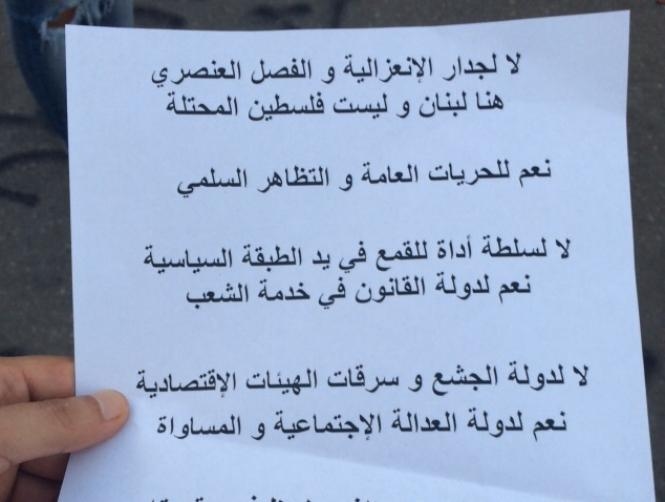 لا لجدار الإنعزالية و الفصل العنصري
هنا لبنان و ليست فلسطين المحتلة
نعم للحريات العامة و التظاهر السلمي
لا لسلطة أداة للقمع في يد الطبقة السياسية
نعم لدولة القانون في خدمة الشعب
لا لدولة الجشع و سرقات الهيئات الإقتصادية
نعم لدولة العدالة الإجتماعية و المساواة